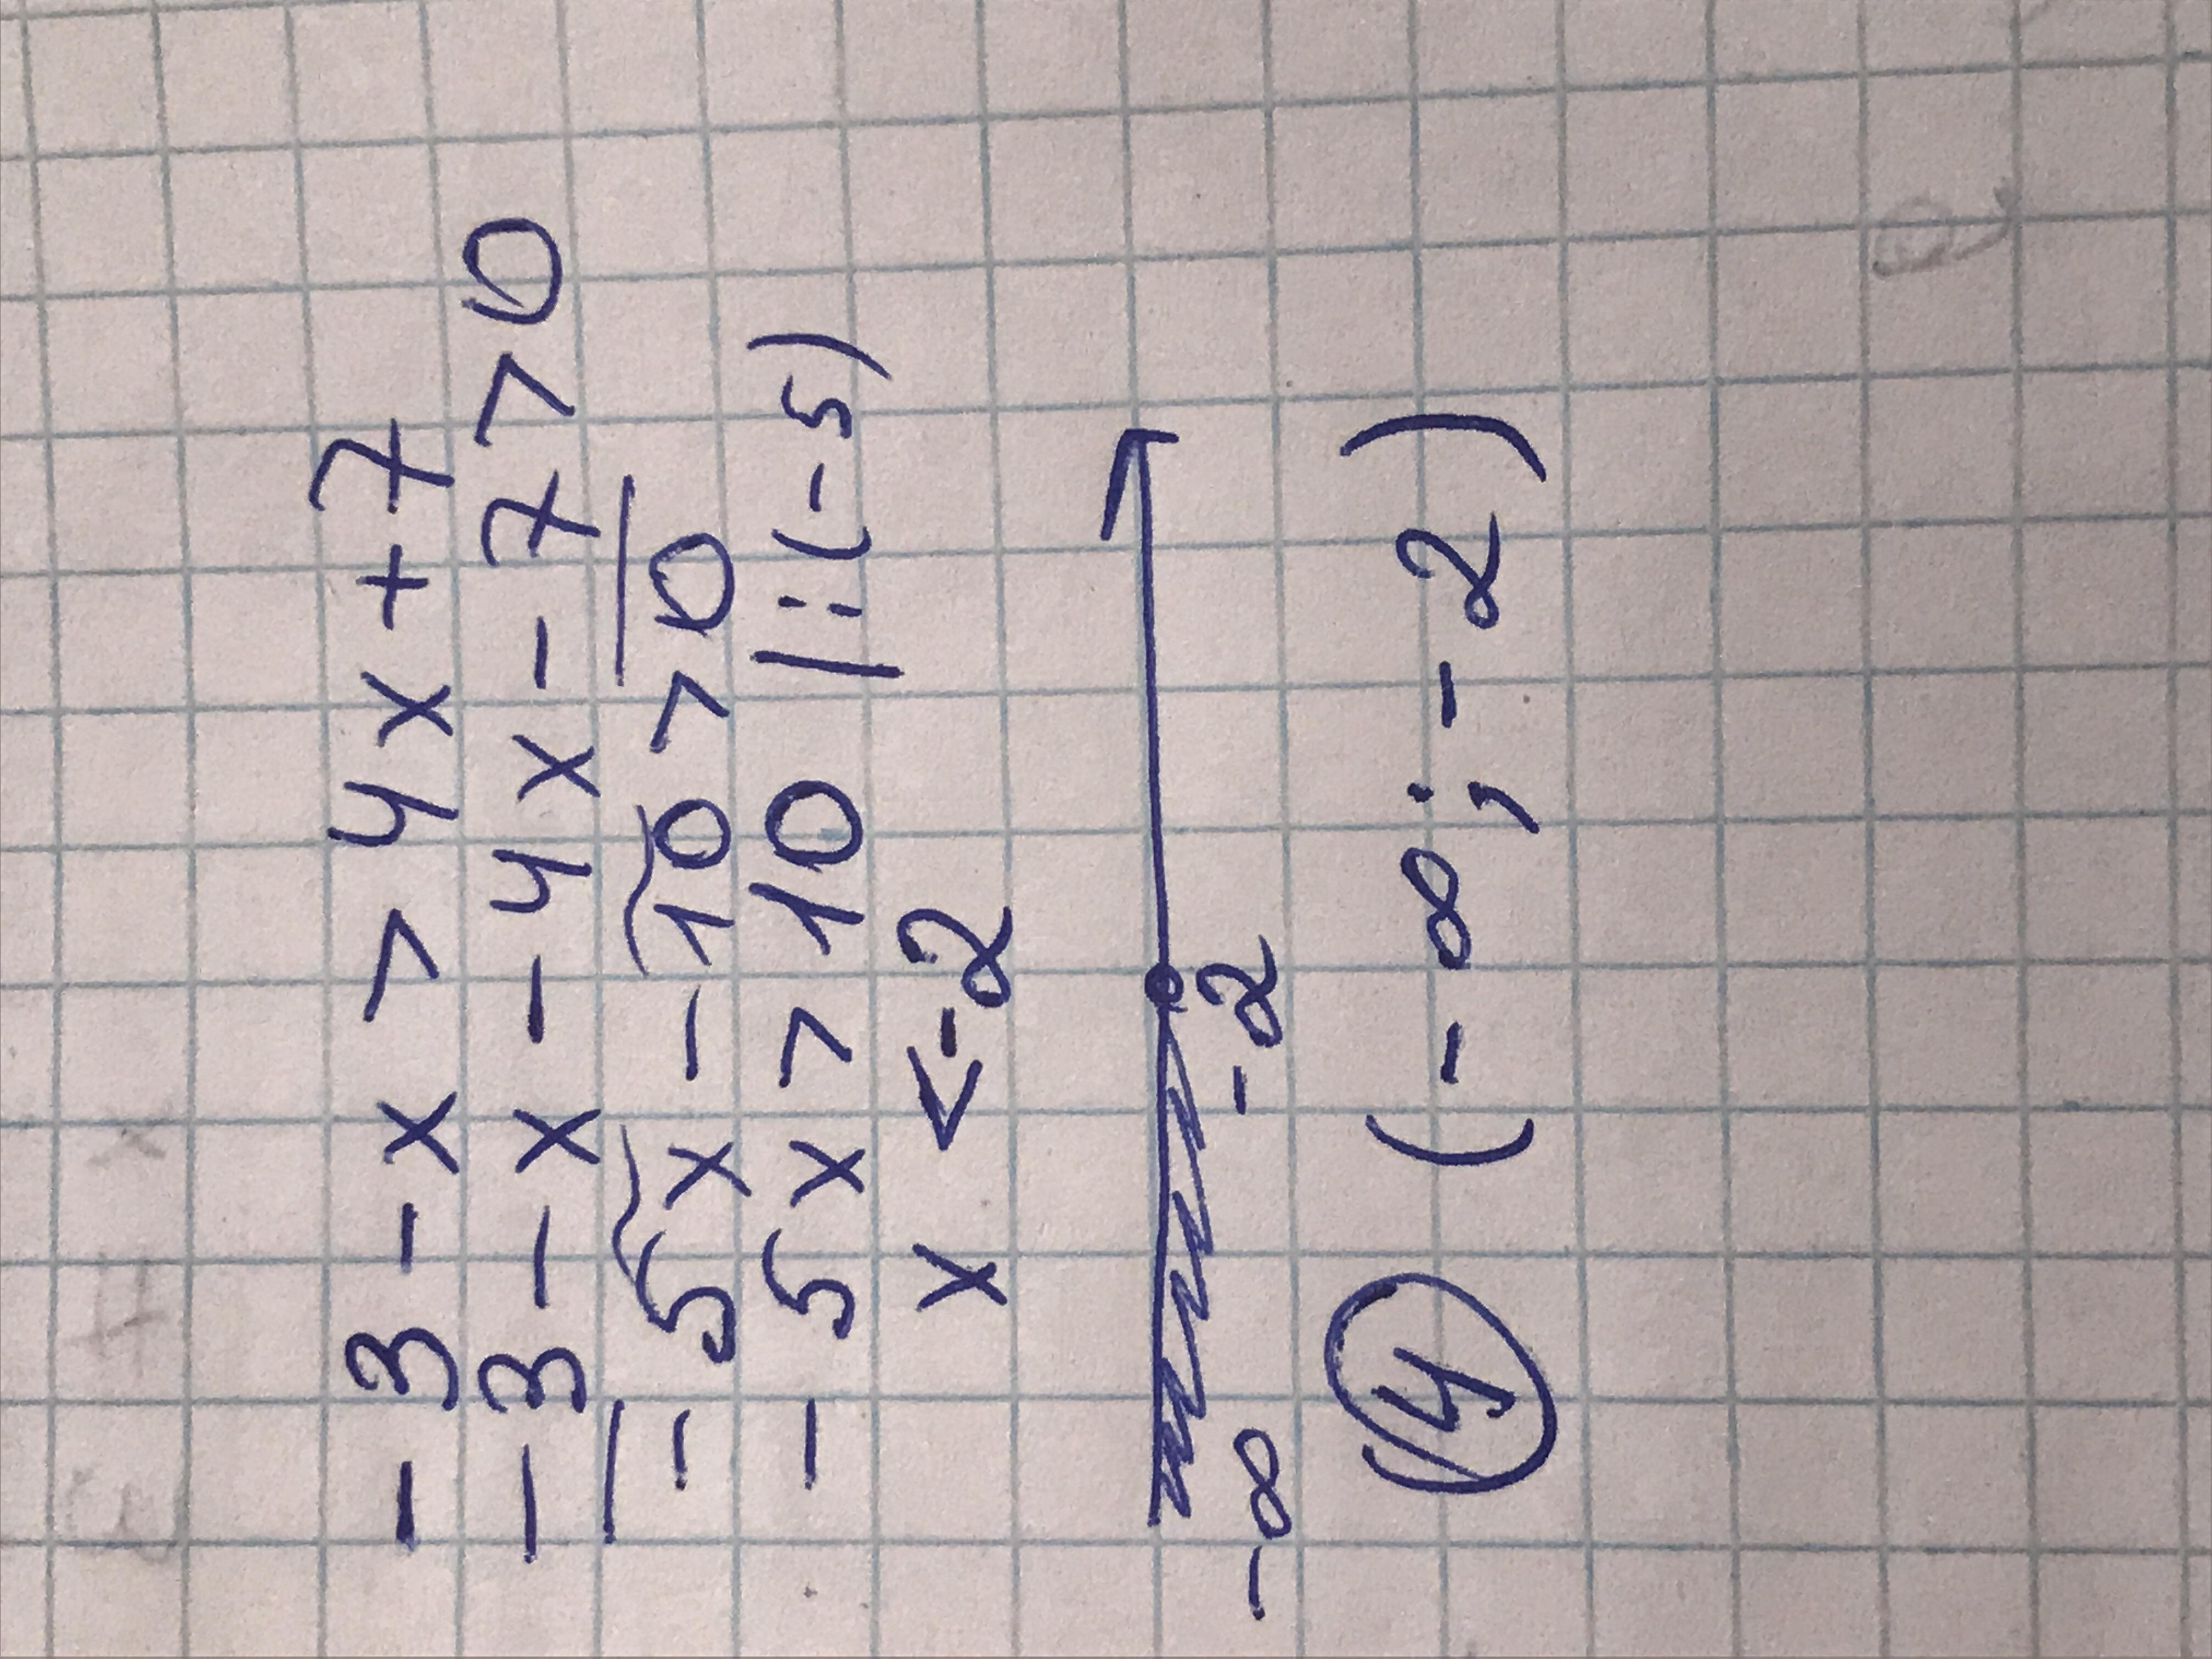 -3-x>4x+7
-3-x-4x-7>0
-5x-10>0
-5x>10 |:(-5)
x<-2
-∞ -2
4 (-∞;-2)